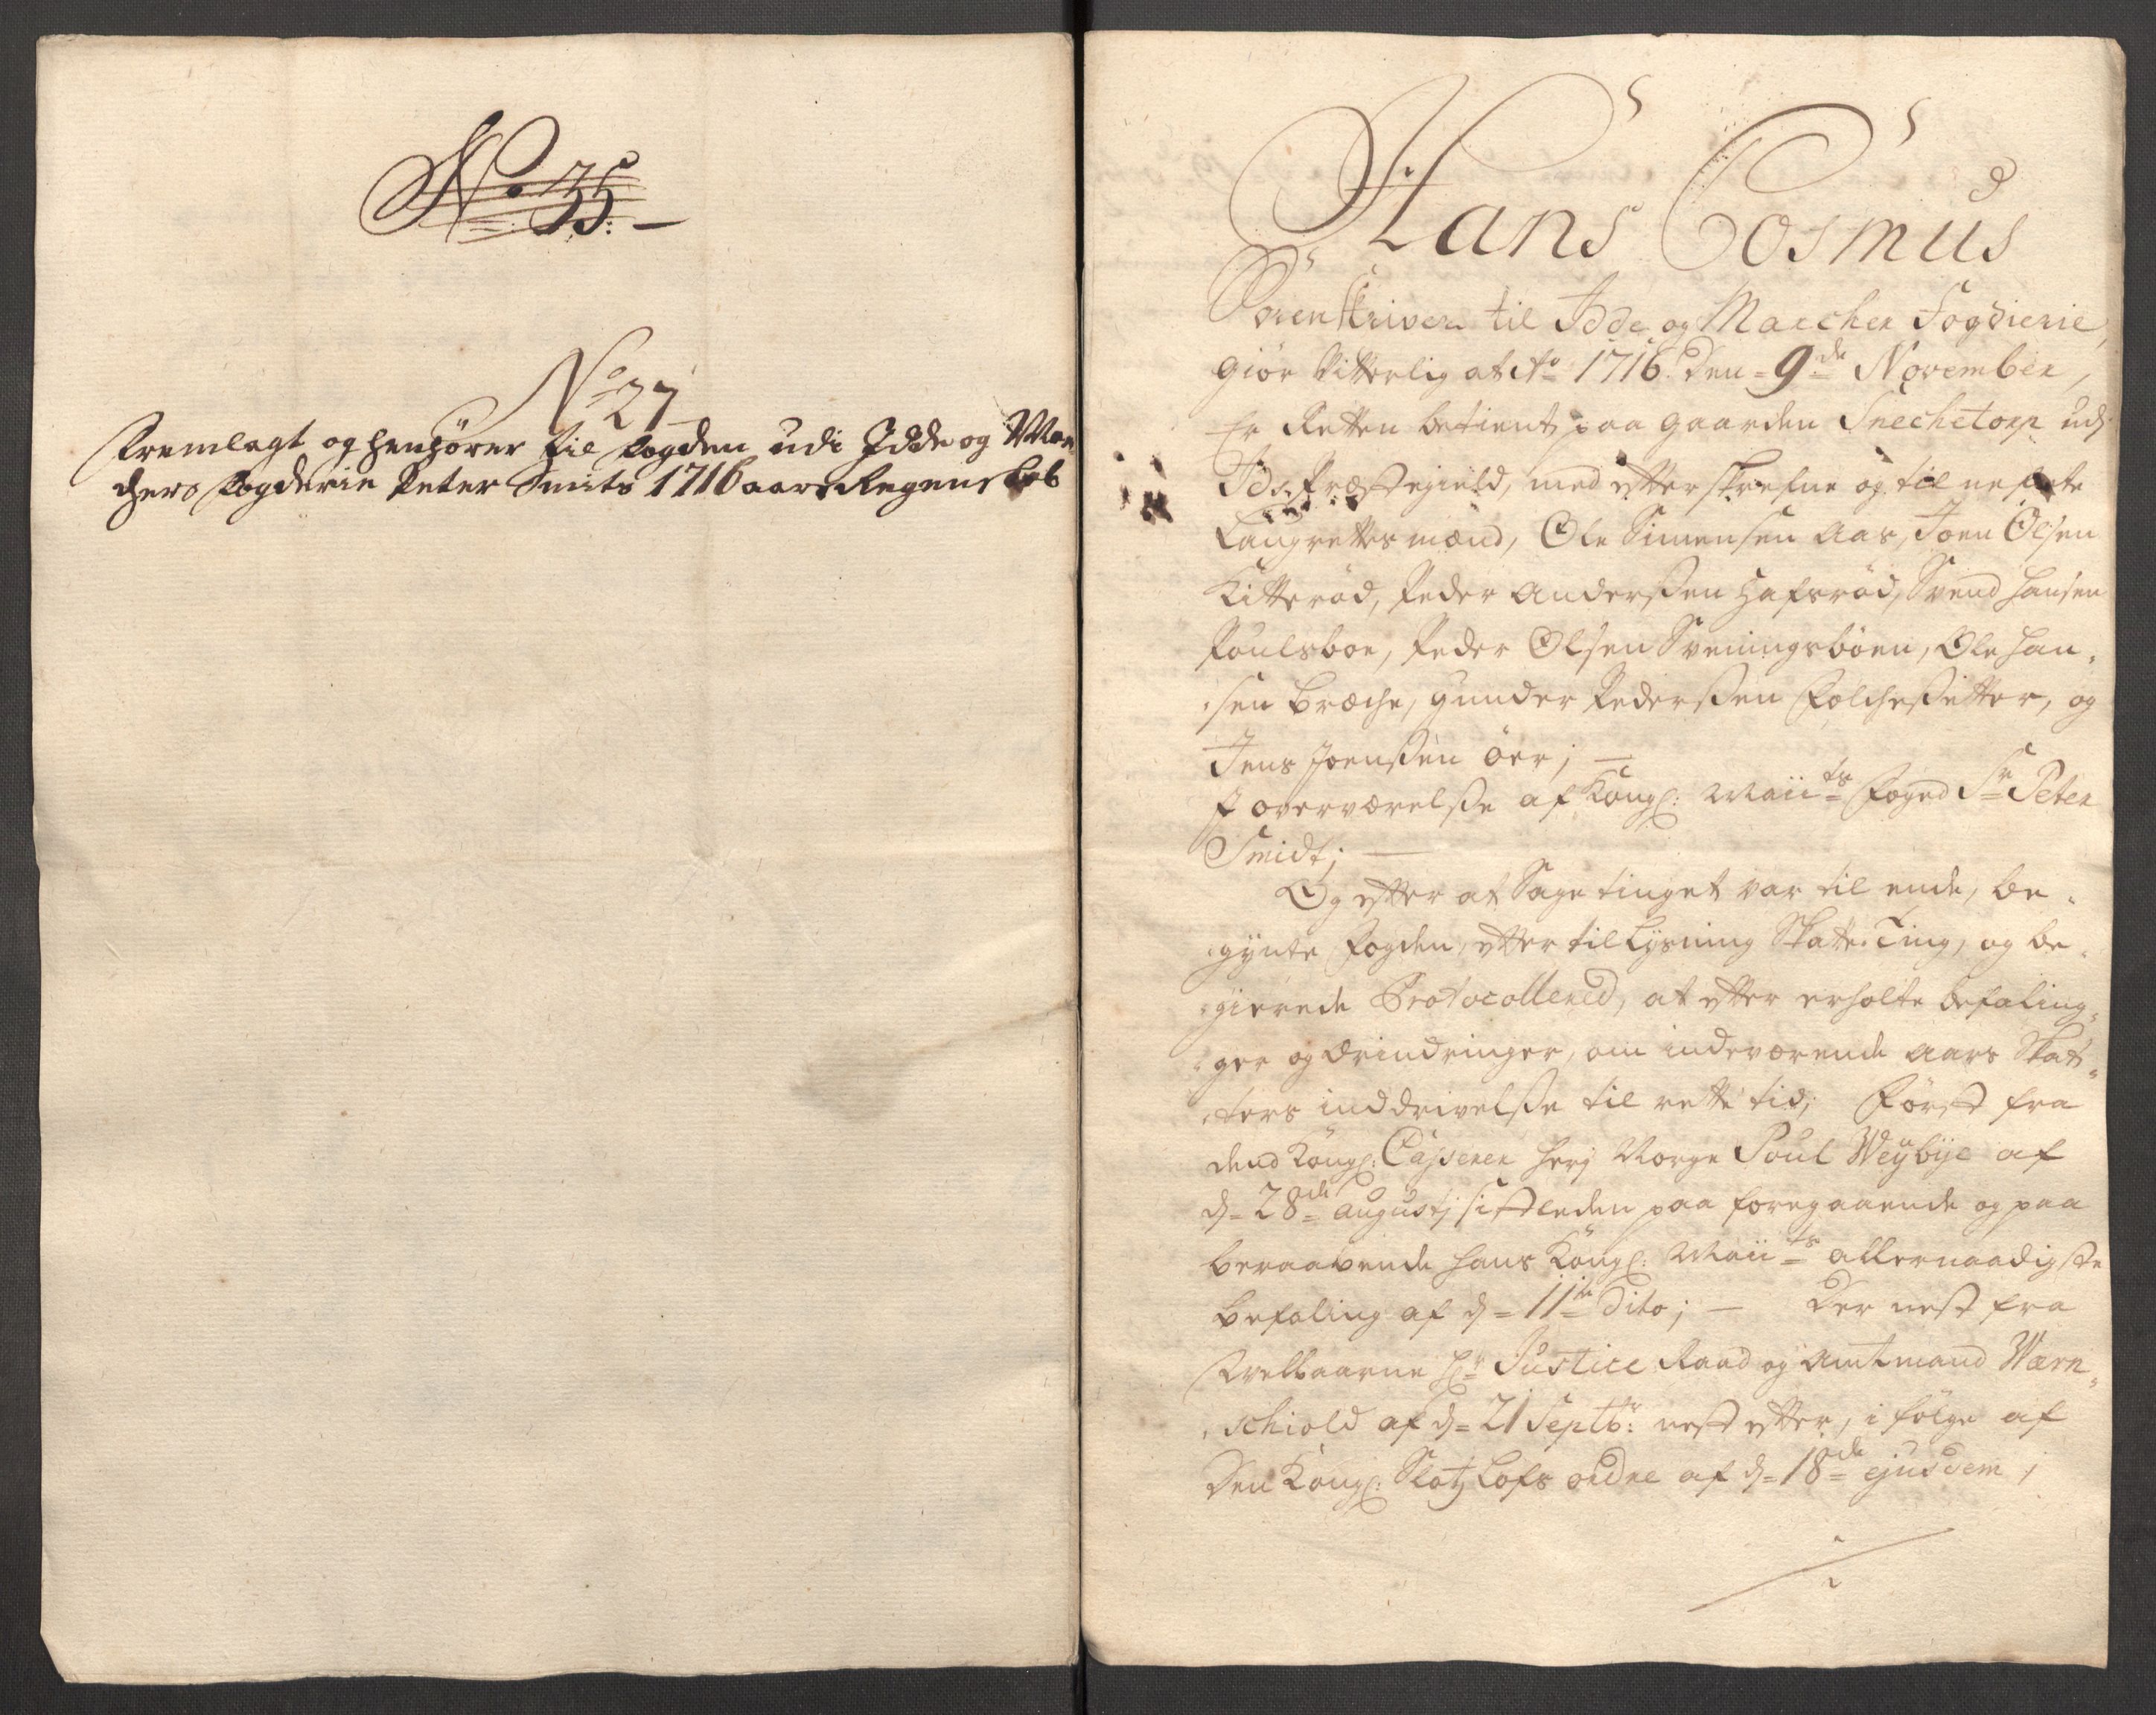 No 35.
No 27
Fremlagt og henhører til fogden udi Idde og Mar¬
chers fogderie Peter Smits 1716 aars Regenskab
Hans Cosmus
Sorenskriver til Idde og Marcher Fogderie,
giør vitterlig at Ao 1716. Den 9de November,
Er Retten betient paa gaarden Snechetorp udj
Ids Præstegield, med efterskrefne og til nefnte
Laugrettes mænd, Ole Simensen Aas, Joen Olsen
Kitterød, Peder Anderssen Hafsrød, Svend Hansen
Poulsboe, Peder Olsen Sveningsbøen, Ole Han¬
sen Bræche, Gunder Pederssen Folchesetter, og
Jens Joenssen Øer; —
J overværelsse af Kongl: Maiits Foged Sr Peter
Smidt; —
Og etter at Sage tinget var til ende, be¬
gynte Fogden, etter tillysning Skatte Ting, og be¬
gierede Protocollered, at etter erholte befaling¬
ger og Erindringer, om indeværende Aars Skat¬
ters inddrivelsse til rette tid; Først fra
dend Kongl: Casserer Herj Norge Poul Weybye af
d= 28de augustj sistleden paa foregaaende og paa
beraabende Hans Kongl: Maiits allernaadigste
befaling af d= 11te Dito; — Der nest fra
Velbaarne Hr Justice Raad og Amtmand Wærn¬
schiold af d= 21 Septbr: nest etter, i følge af
Den Kongl: Slotz Lofs ordre af d= 18de ejusdem,